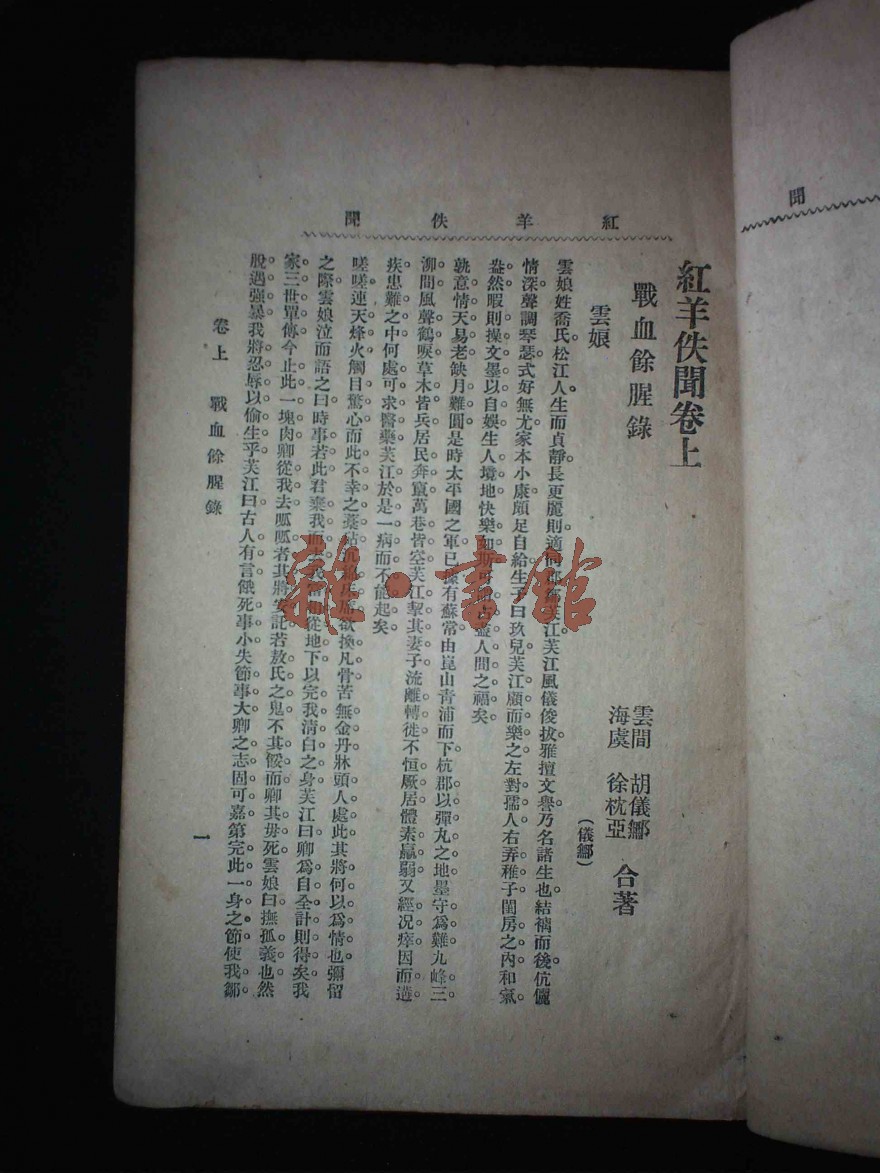 聞
紅羊佚聞
紅羊佚聞卷上
戰血餘腥錄
雲間 胡儀鄜
海虞 徐枕亞
合著
雲娘
(儀鄜)
雲娘姓喬氏松江人生而貞靜長更麗則適同郡鄒芙江芙江風儀俊拔雅擅文譽乃名諸生也結褵而後伉儷
情深聲調琴瑟式好無尤家本小康頗足自給生子曰玖兒芙江顧而樂之左對孺人右弄稚子閨房之內和氣
盎然暇則操文墨以自娛生人境地快樂如斯可謂占盡人間之福矣
孰意情天易老缺月難圓是時太平國之軍已據有蘇常由崑山青浦而下杭郡以彈丸之地墨守為難九峰三
泖間風聲鶴唳草木皆兵居民奔竄萬巷皆空芙江挈其妻子流離轉徙不恒厥居體素羸弱又經況瘁因而遘
疾患難之中何處可求醫藥芙江於是一病而不能起矣
嗟嗟連天烽火觸目驚心而此不幸之藁砧沉綿床席欲換凡骨苦無金丹牀頭人處此其將何以為情也彌留
之際雲娘泣而語之曰時事若此君棄我而去我當相從地下以完我清白之身芙江曰卿為自全計則得矣我
家三世單傳今止此一塊肉卿從我去呱呱者其將安託若敖氏之鬼不其餒而卿其毋死雲娘曰撫孤義也然
脫遇強暴我將忍辱以偷生乎芙江曰古人有言餓死事小失節事大卿之志固可嘉第完此一身之節使我鄒
卷上 戰血餘腥錄
一
雜·書館